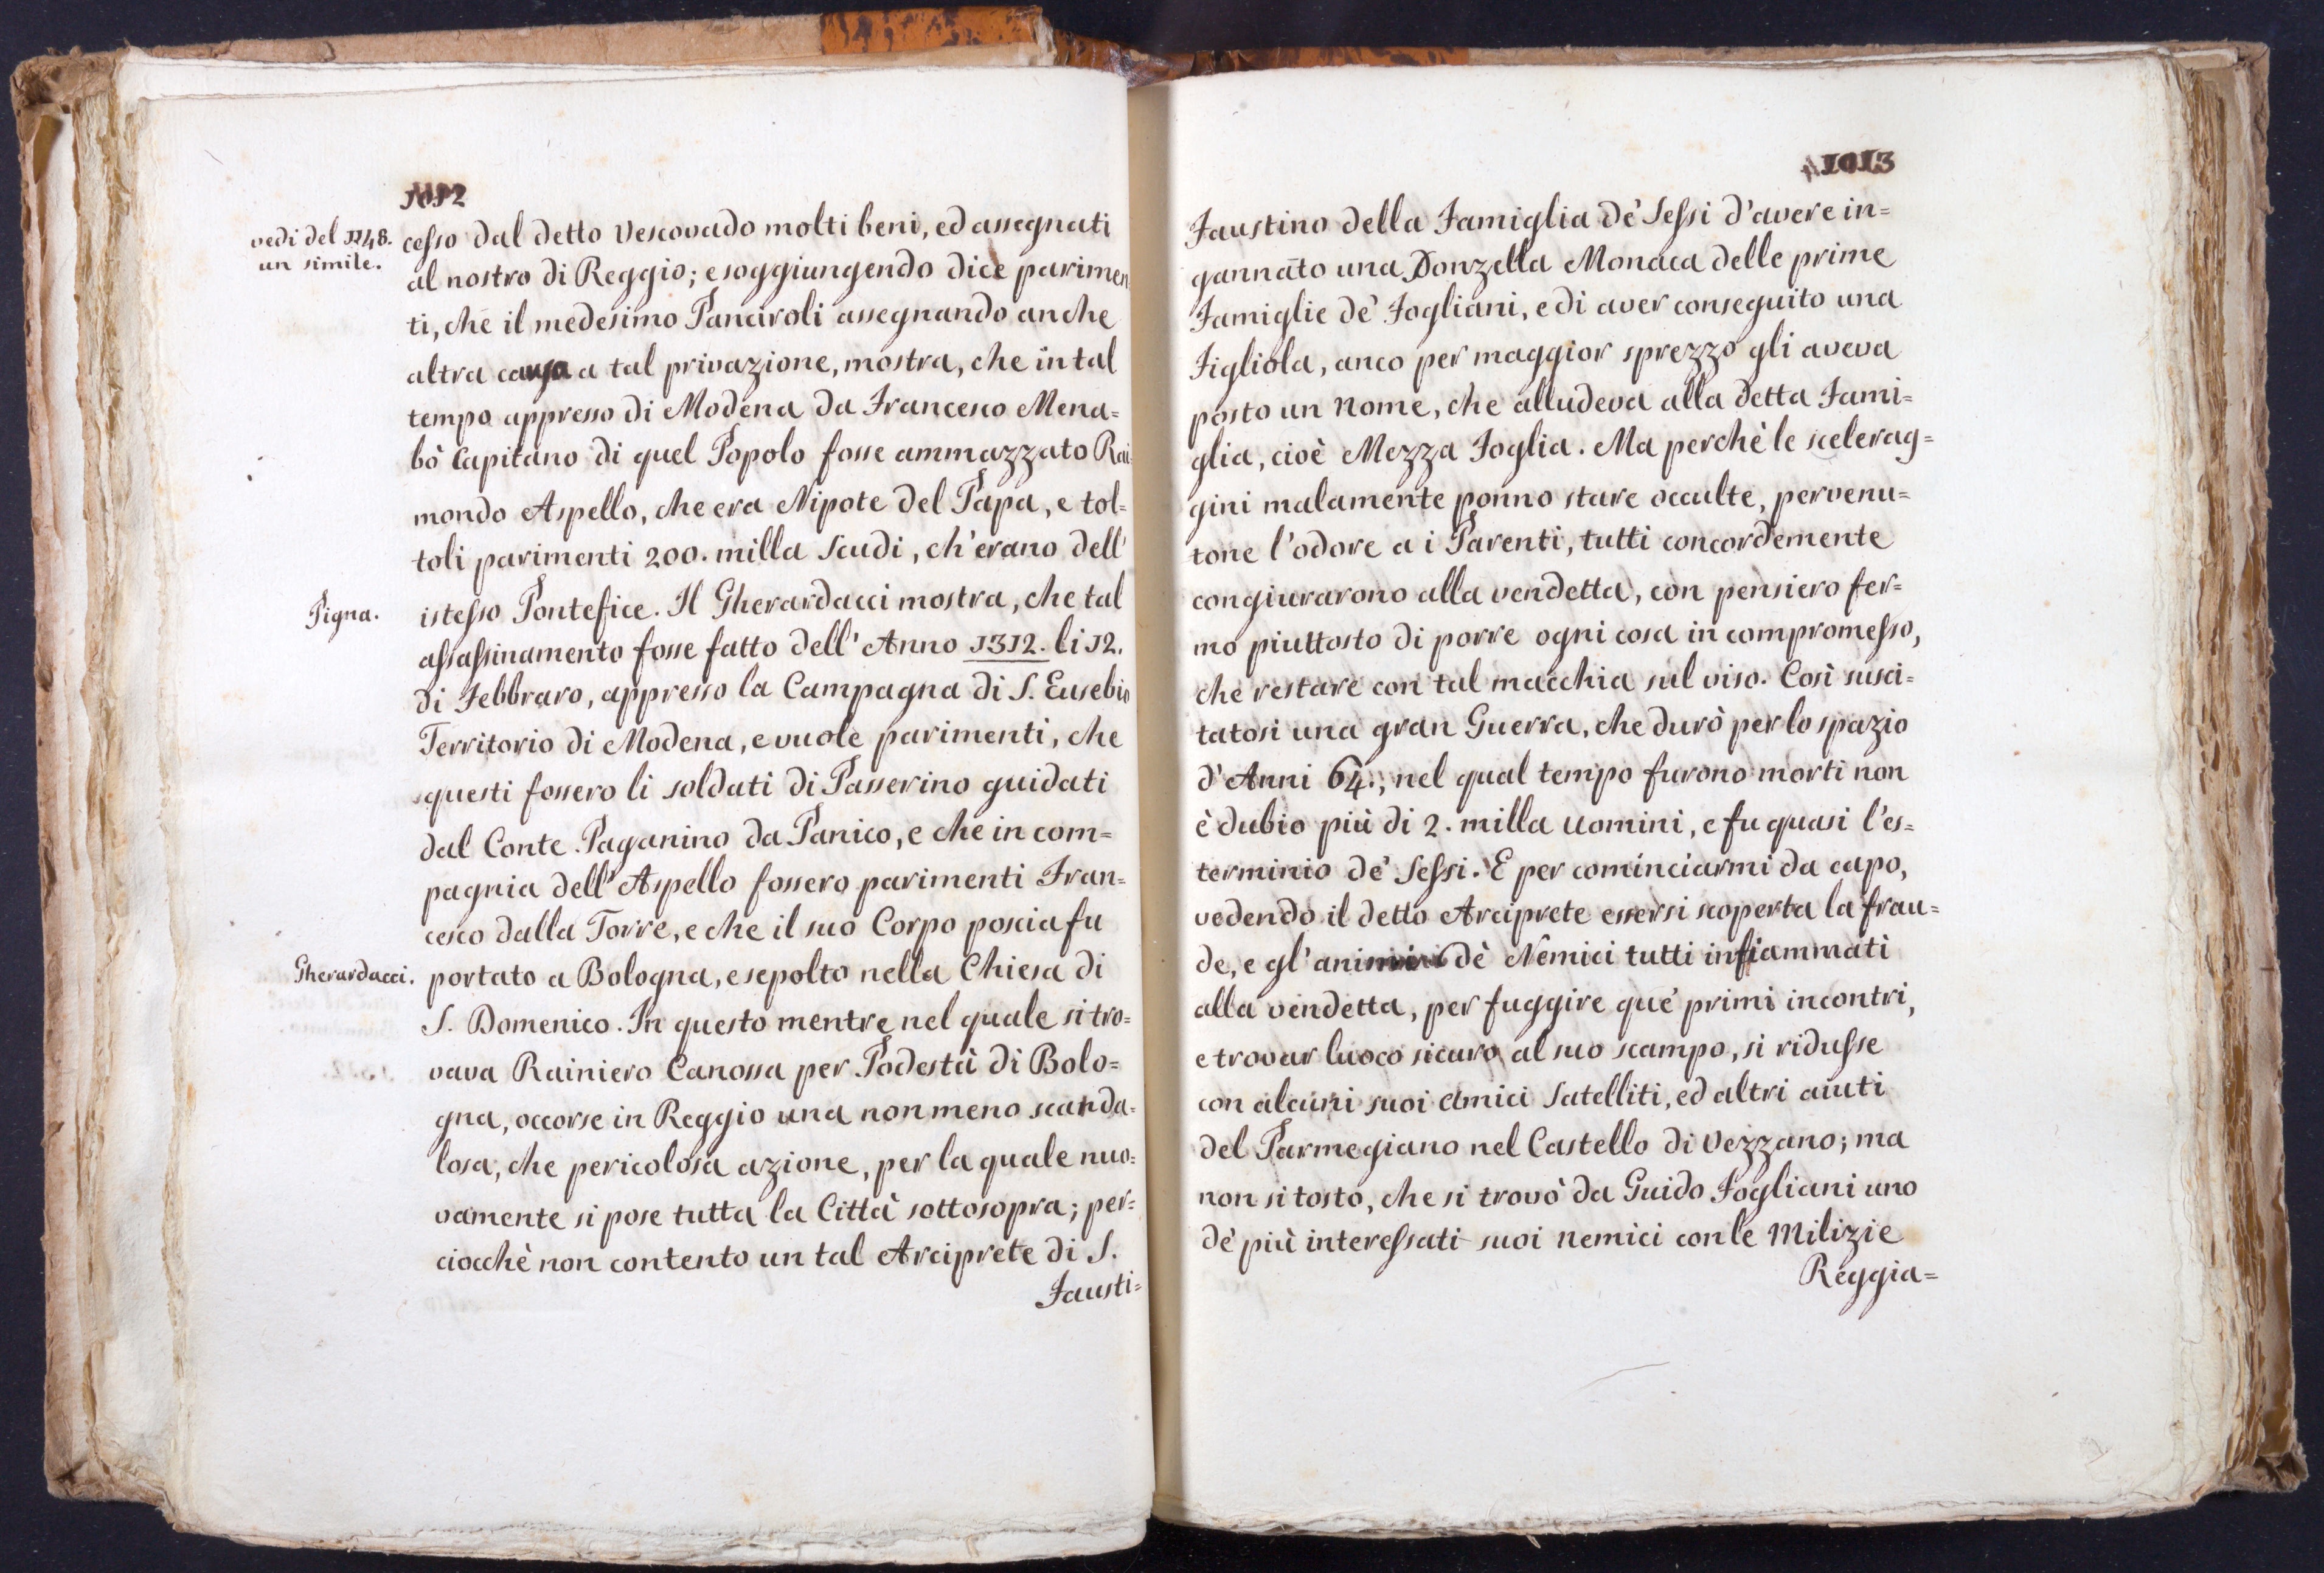 1012
vedi del 1248.
un simile.
cesso dal detto Vescovado molti beni, ed assegnati
al nostro di Reggio; e soggiungendo dice parimen
ti, che il medesimo Panciroli assegnando anche
altra causa a tal privazione, mostra, che in tal
tempo appresso di Modena da Francesco Mena=
bò Capitano di quel Popolo fosse ammazzato Rai=
mondo Aspello, che era Nipote del Papa, e tol=
toli parimenti 200. milla Scudi, ch'erano dell'
Pigna.
istesso Pontefice. Il Gherardacci mostra, che tal
assassinamento fosse fatto dell' Anno 1312. li 12.
di Febbraro, appresso la Campagna di S. Eusebio
Territorio di Modena, e vuole parimenti, che
questi fossero li soldati di Passerino guidati
dal Conte Paganino da Panico, e che in com=
pagnia dell' Aspello fossero parimenti Fran=
cesco dalla Torre, e che il suo Corpo poscia fu
Gherardacci.
portato a Bologna, e sepolto nella Chiesa di
S. Domenico. In questo mentre nel quale si tro=
vava Rainiero Canossa per Podestà di Bolo=
gna, occorse in Reggio una non meno scanda=
losa, che pericolosa azione, per la quale nuo=
vamente si pose tutta la Città sottosopra; per=
ciocchè non contento un tal Arciprete di S.
Fausti=
1013
Faustino della Famiglia de' Sessi d'avere in=
gannato una Donzella Monaca delle prime
Famiglie de' Fogliani, e di aver conseguito una
Figliola, anco per maggior sprezzo gli aveva
posto un Nome, che alludeva alla detta Fami=
glia, cioè Mezza Foglia. Ma perchè le scelerag=
gini malamente ponno stare occulte, pervenu=
tone l'odore a i Parenti, tutti concordemente
congiurarono alla vendetta, con pensiero fer=
mo piuttosto di porre ogni cosa in compromesso,
che restare con tal macchia sul viso. Così susci=
tatosi una gran Guerra, che durò per lo spazio
d'Anni 64., nel qual tempo furono morti non
è dubio più di 2. milla uomini, e fu quasi l'es=
terminio de' Sessi. E per cominciarmi da capo,
vedendo il detto Arciprete essersi scoperta la frau=
de, e gl'animi dè Nemici tutti infiammati
alla vendetta, per fuggire que' primi incontri,
e trovar luoco sicuro al suo scampo, si ridusse
con alcuni suoi Amici Satelliti, ed altri aiuti
del Parmegiano nel Castello di Vezzano; ma
non si tosto, che si trovò da Guido Fogliani uno
dè più interessati suoi nemici con le Milizie
Reggia=